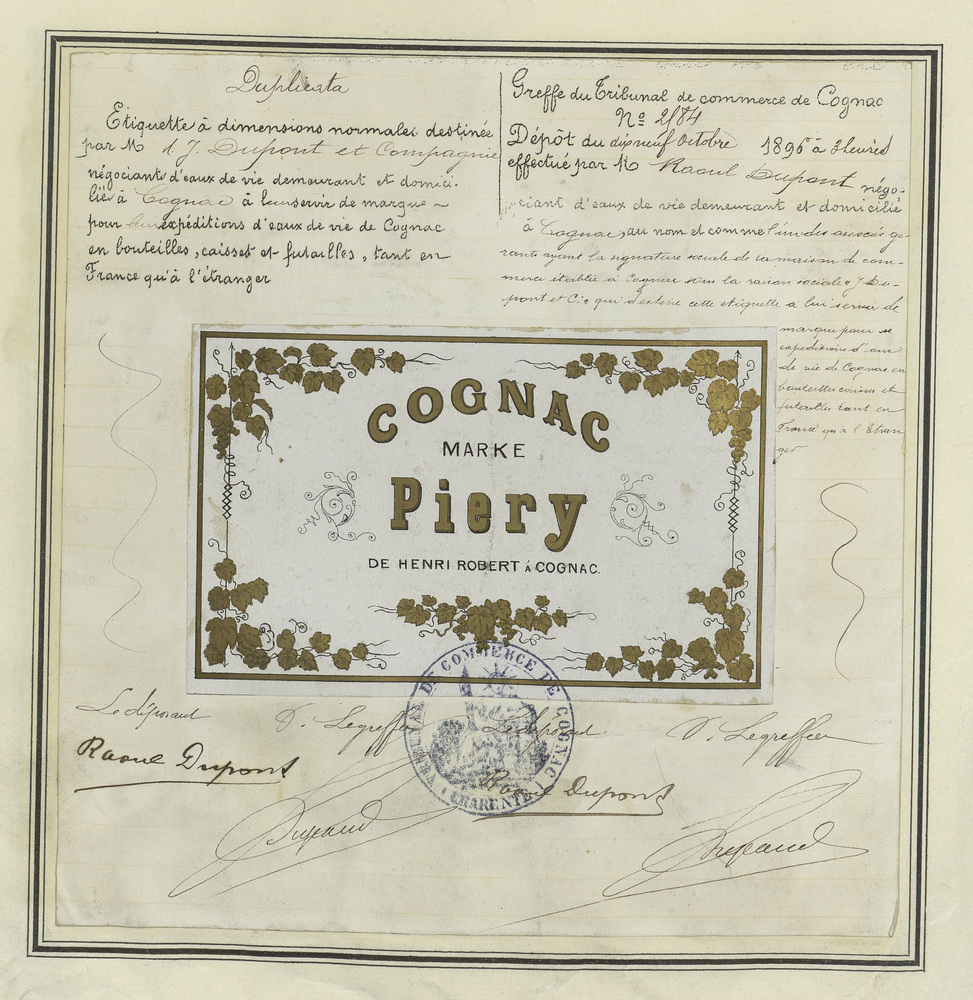 Duplicata
Etiquette à dimensions normales destinée
par M J. Dupont et Compagnie
négociants d'eaux de vie demeurant et domici-
liés à Cognac à leur servir de marque
pour leurs expéditions d'eaux de vie de Cognac
en bouteilles, caisses et futailles, tant en
France qu'à l'étranger
Greffe du Tribunal de commerce de Cognac
No 2184
Dépôt du dix neuf Octobre 1896 à 3 heures
effectué par M Raoul Dupont négo-
ciant d'eaux de vie demeurant et domicilié
à Cognac, au nom et comme l'un des associés gé-
rants ayant la signature sociale de la maison de com-
merce établie à Cognac sous la raison sociale "J. Du-
pont et Cie" qui destine cette étiquette à lui servir de
marque pour ses
expéditions d'eaux
de vie de Cognac en
bouteilles caisses et
futailles tant en
France qu'à l'Etran
ger
COGNAC
MARKE
Piery
DE HENRI ROBERT á COGNAC.
TRIBUNAL DE COMMERCE DE COGNAC
(CHARENTE)
Le déposant
Le greffier
Le déposant
Le greffier
Raoul Dupont
Raoul Dupont